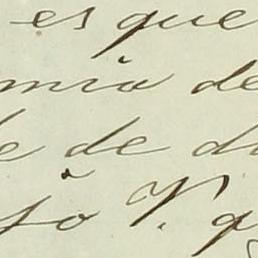 es que
mia de
e de do
so V. q